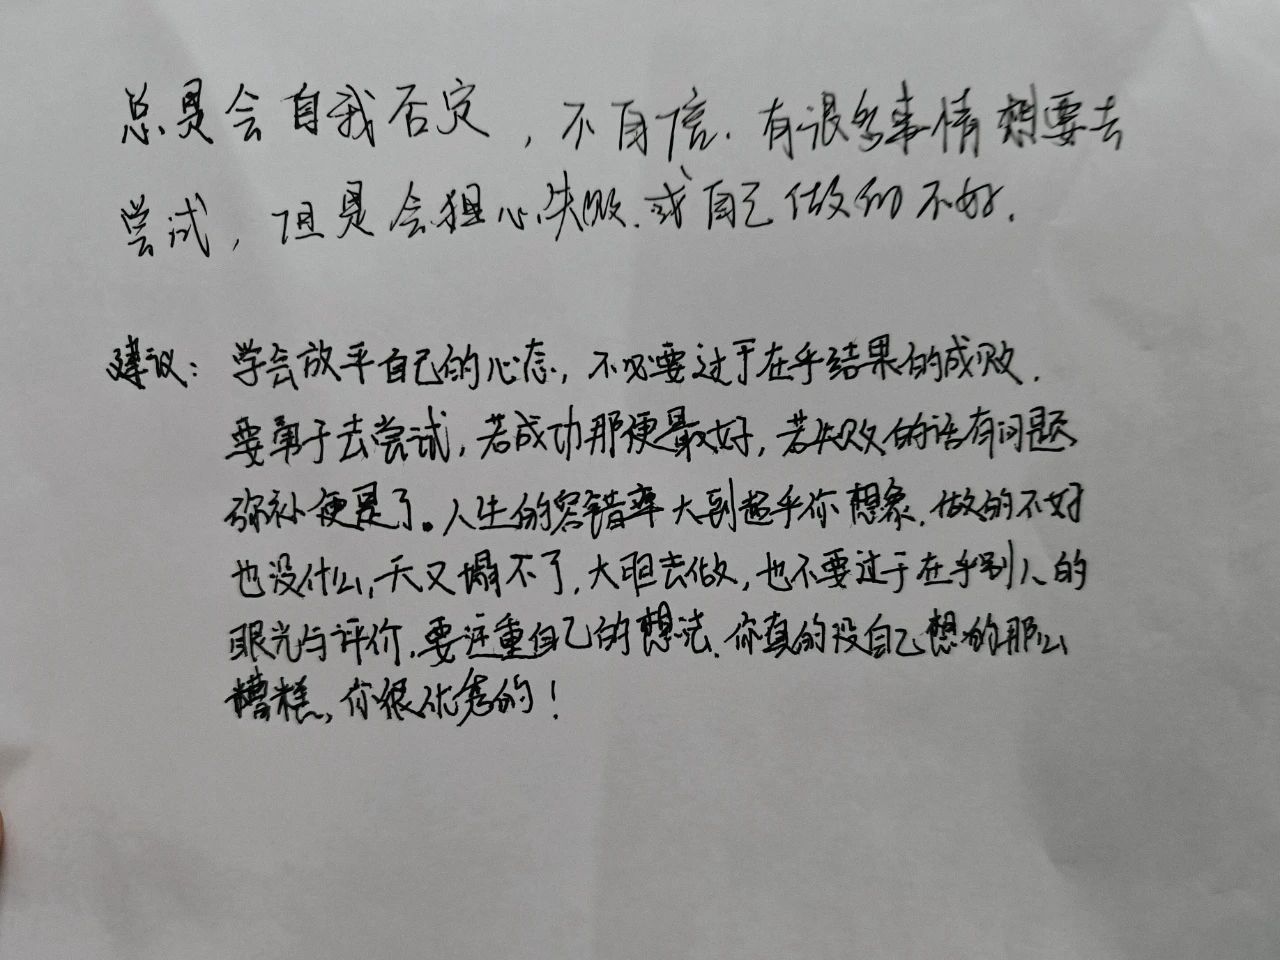 总是会自我否定，不自信.有很多事情想要去
尝试，但是会担心失败.或自己做的不好.
建议：学会放平自己的心态，不必要过于在乎结果的成败.
要勇于去尝试，若成功那便最好，若失败的话有问题
弥补便是了。人生的容错率大到超乎你想象.做的不好
也没什么,天又塌不了,大胆去做，也不要过于在乎别人的
眼光与评价,要注重自己的想法.你真的没自己想的那么
糟糕,你很优秀的！